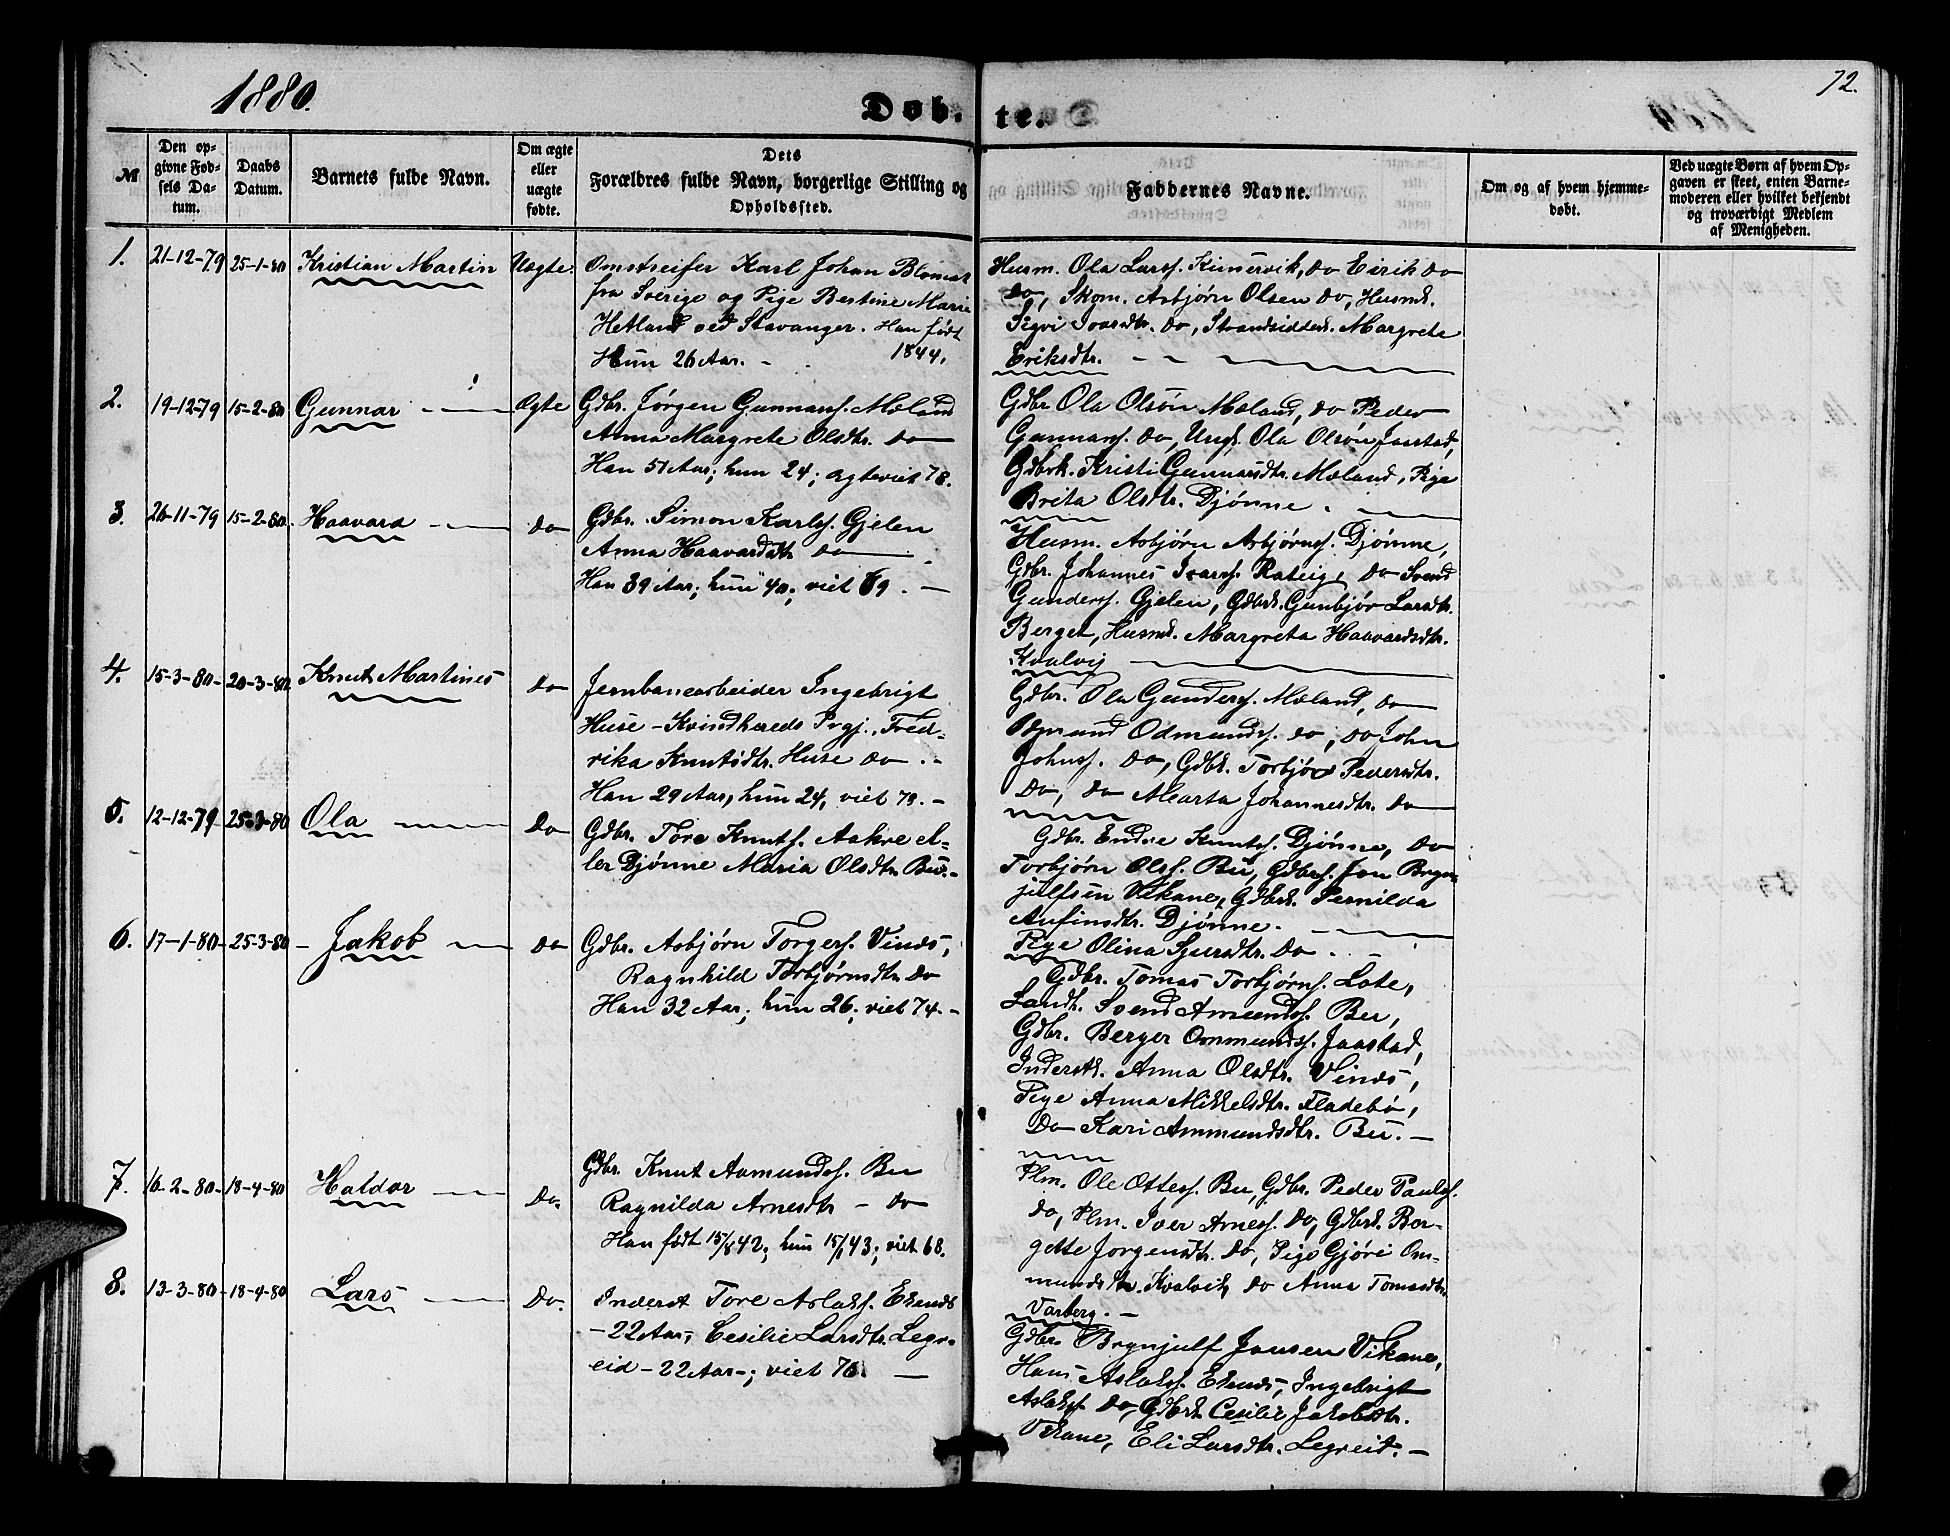 1880.
72.
Døbte.
№
Den opgivne Fødsels Datum.
Daabs Datum.
Barnets fulde Navn.
Om ægte eller uægte fødte.
Dets Forældres fulde Navn, borgerlige Stilling og Opholdssted.
Faddernes Navne.
Om og af hvem hjemmedøbt.
Ved uægte Børn af hvem Opgaven er skeet, enten Barnemoderen eller hvilket bekjendt og troværdigt Medlem af Menigheden.
1. 21-12-79 25-1-80 Kristian Martin Uægte.
Omstreifer Karl Johan Blomst
fra Sverige og Pige Bertine Marie
Hetland ved Stavanger. Han født
1844.
Hun 26 Aar. -
Husm. Ola Larss. Kinservik, do Eirik do
do, Skom. Asbjørn Olsen do, Husmk.
Sigvi Ivarsdtr. do, Strandsiddersk. Margreta
Eriksdtr.
2. 19-12-79 15-2-80 Gunnar Ægte
Gdbr. Jørgen Gunnarss. Mæland
Anna Margrete Olsdtr. do
Han 51 Aar; hun 24; ægteviet 78.
Gdbr Ola Olsøn Mæland, do Peder
Gunnarss. do, Ungk. Ola Olsøn Jaastad,
Gdbrk. Kristi Gunnarsdtr. Mæland, Pige
Brita Olsdtr. Djønne.
3. 26-11-79 15-2-80. Haavard do
Gdbr. Simon Karlss. Gjelen
Anna Haavardsdtr do
Han 39 Aar; hun 40; viet 69. -
Husm. Asbjørn Asbjørnss. Djønne,
Gdbr. Johannes Ivarss. Rateig, do Svend
Gunderss. Gjelen, Gdbrk. Gunbjør Larsdtr.
Berget, Husmk. Margreta Haavardsdtr.
Kvalvig
4. 15-3-80- 20-3-80 Knut Martines do
Jernbanearbeider Ingebrigt
Huse - Kvindhereds Prgj., Fred-
rika Knutsdtr. Huse do -
Han 29 Aar, hun 24, viet 79. -
Gdbr. Ola Gunderss. Mæland, do
Odmundss. do, do John
Johnss. do, Gdbk. Torbjør Pedersdtr.
do, do Marta Johannesdtr. do
5. 12-12-79 25-3-80 Ola do
Gdbr. Tore Knutss. Aakre el-
ler Djønne Maria Olsdtr. Bu. -
Gdbr. Endre Knutss. Djønne, do
Torbjørn Olss. Bu, Gdbrss. Jon Bryn-
julfsen Vikane, Gdbrk. Pernilda
Anfinsdtr. Djønne.
Pige Olina Sjursdtr. do. -
6. 17-1-80- 25-3-80- Jakob do
Gdbr. Asbjørn Torgerss. Vinds,
Ragnhild Torbjørnsdtr. do
Han 32 Aar; hun 26; viet 74. -
Gdbr. Tomas Torbjørnss. Lote,
Landh. Svend Amundss. Bu,
Gdbr. Berger Ommundss. Jaastad,
Inderstk. Anna Olsdtr. Vinds,
Pige Anna Mikkelsdtr. Fladebø,
do Kari Ammundsdtr. Bu. -
7. 16-2-80- 18-4-80 Haldor do.
Gdbr. Knut Aamundss. Bu
Ragnilda Arnesdtr - do
Han født 15/8 42; hun 15/1 43; viet 68.
Plm. Ole Ottess. Bu, Gdbr. Peder Paulss.
do, Plm. Iver Arness. do, Gdbrk. Ber-
gette Jørgensdtr. do, Pige Gjøri Om-
mundsdtr. Kvalvik, do Anna Tomasdtr.
Varberg. -
8. 13-3-80- 18-4-80 Lars do.
Inderst Tore Aslakss. Eknds
- 22 Aar, Cesilie Larsdtr. Legr-
eid - 22 Aar -; viet 78. -
Gdbr. Brynjulf Jonsen Vikane,
Hans Aslakss. Eknds, Ingebrigt
Aslakss. do, Gdbrk Cesilie Jakobsdtr.
Vikane, Eli Larsdtr. Legreid. -